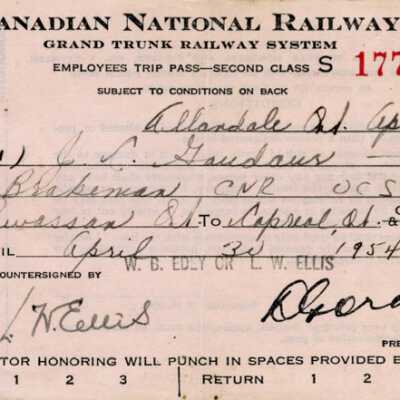 CANADIAN NATIONAL RAILWAY
GRAND TRUNK RAILWAY SYSTEM
EMPLOYEES TRIP PASS—SECOND CLASS S 177
SUBJECT TO CONDITIONS ON BACK
Allandale Ont. Ap
J. L. Gaudaur
Brakeman CNR OCS
wassan Ot. To Capreol, Ot. &
IL April 30 1954
COUNTERSIGNED BY W. B. EDEY OR L. W. ELLIS
W. Ellis
PRE
TOR HONORING WILL PUNCH IN SPACES PROVIDED B
1 2 3 RETURN 1 2